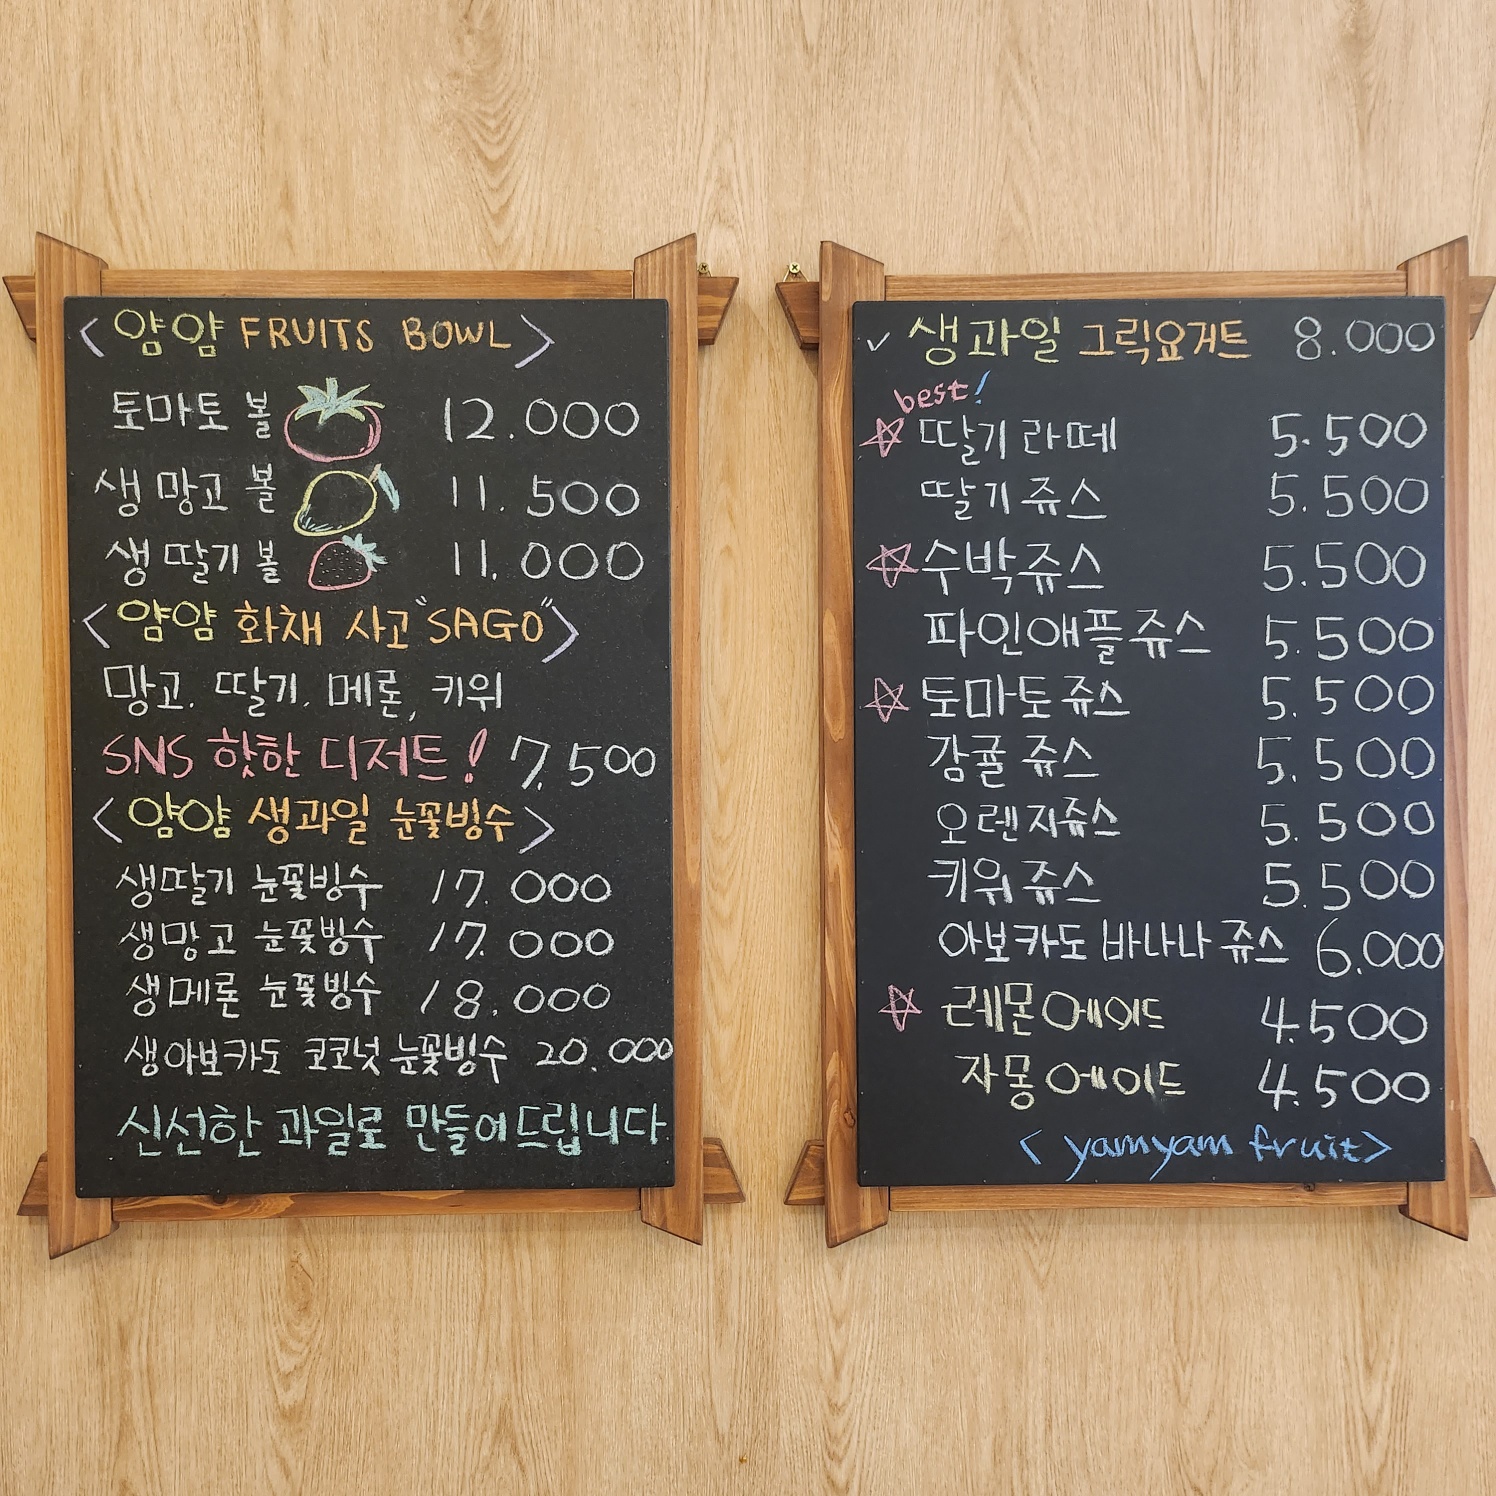 <얌얌 FRUITS BOWL>
토마토 볼 12.000
생 망고 볼 11.500
생 딸기 볼 11.000
<얌얌 화채 사고 "SAGO">
망고. 딸기. 메론, 키위
SNS 핫한 디저트! 7.500
<얌얌 생과일 눈꽃빙수>
생딸기 눈꽃빙수 17.000
생망고 눈꽃빙수 17.000
생메론 눈꽃빙수 18.000
생아보카도 코코넛 눈꽃빙수 20.000
신선한 과일로 만들어드립니다.
✓ 생과일 그릭요거트 8.000
best!
☆ 딸기 라떼 5.500
딸기 쥬스 5.500
☆ 수박쥬스 5.500
파인애플 쥬스 5.500
☆ 토마토 쥬스 5.500
감귤 쥬스 5.500
오렌지쥬스 5.500
키위 쥬스 5.500
아보카도 바나나 쥬스 6.000
☆ 레몬에이드 4.500
자몽에이드 4.500
<yamyam fruit>